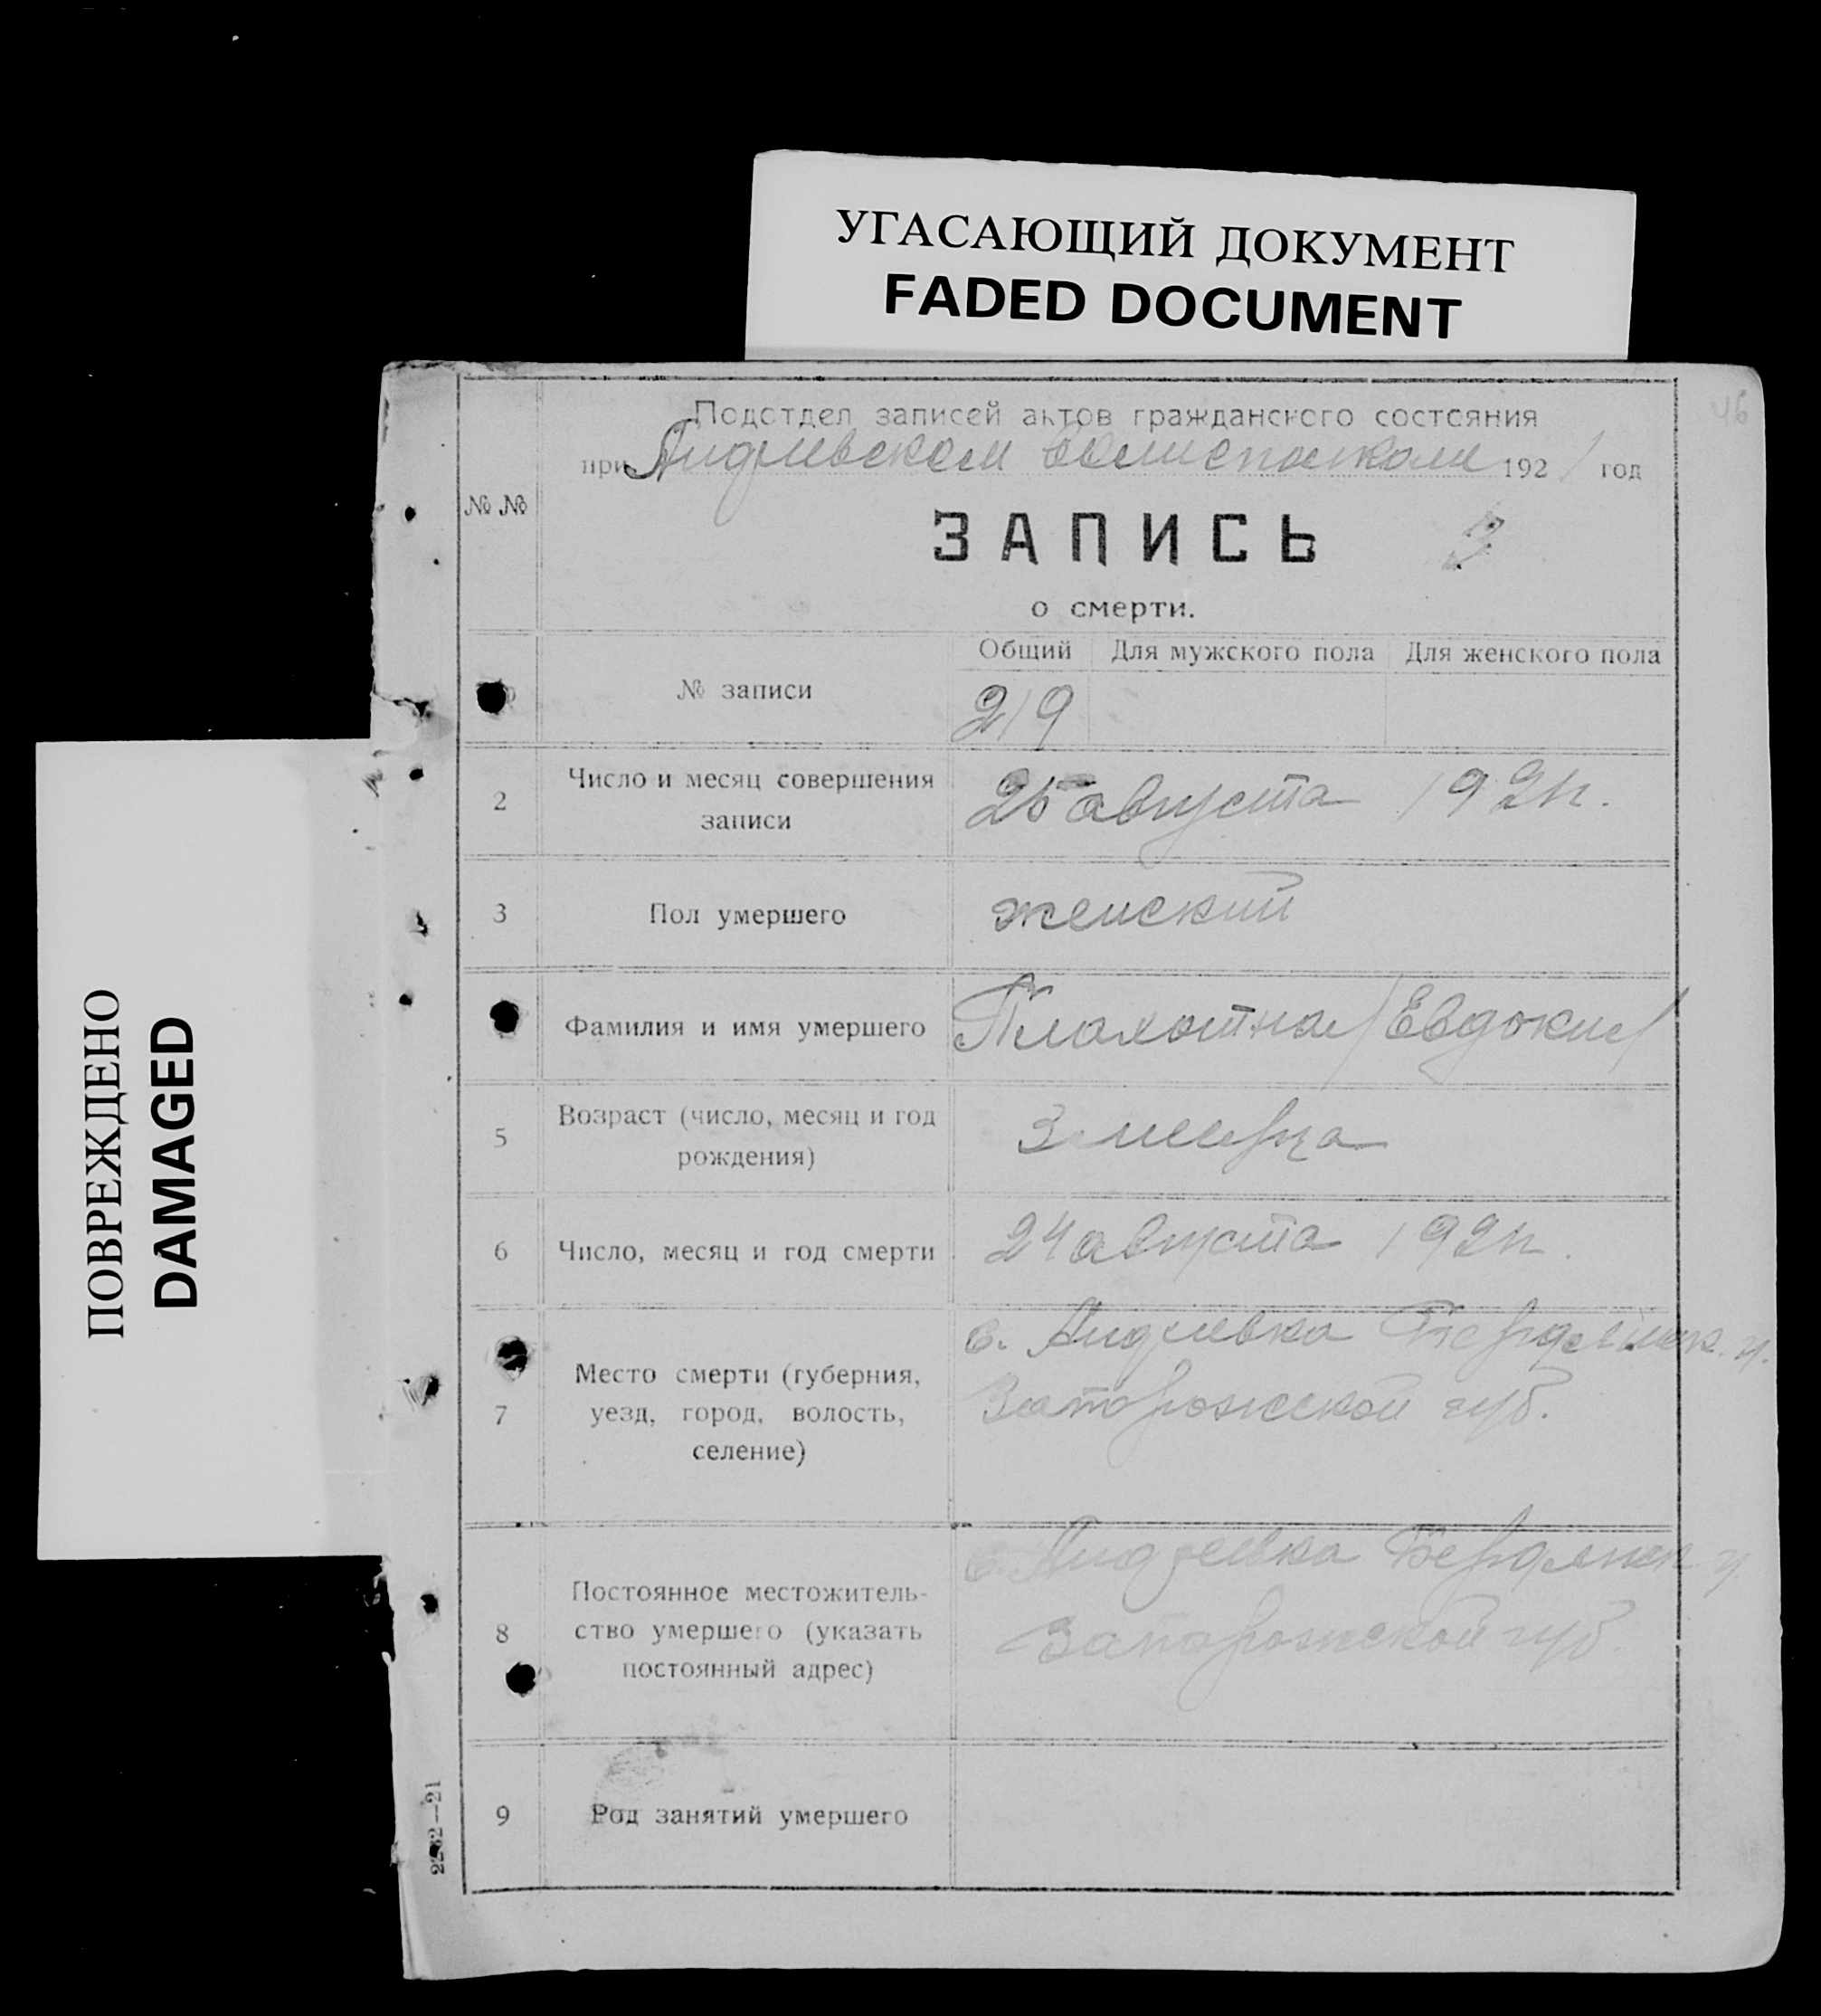 УГАСАЮЩИЙ ДОКУМЕНТ
FADED DOCUMENT
ПОВРЕЖДЕНО
DAMAGED
46
Подотдел записей актов гражданского состояния
при Андреевском волисполкоме 1921 год
№ №
ЗАПИСЬ
о смерти.
Общий Для мужского пола Для женского пола
№ записи 219
2 Число и месяц совершения
записи
25 августа 1921г.
3 Пол умершего женский
Фамилия и имя умершего Плахотная /Евдокия/
5 Возраст (число, месяц и год
рождения)
3 месяца
6 Число, месяц и год смерти 24 августа 1921г.
7 Место смерти (губерния,
уезд, город, волость,
селение)
с. Андреевка Бердянск. у.
Запорожской губ.
8 Постоянное местожитель-
ство умершего (указать
постоянный адрес)
с. Андреевка Бердянск у.
Запорожской губ.
9 Род занятий умершего
2262—21